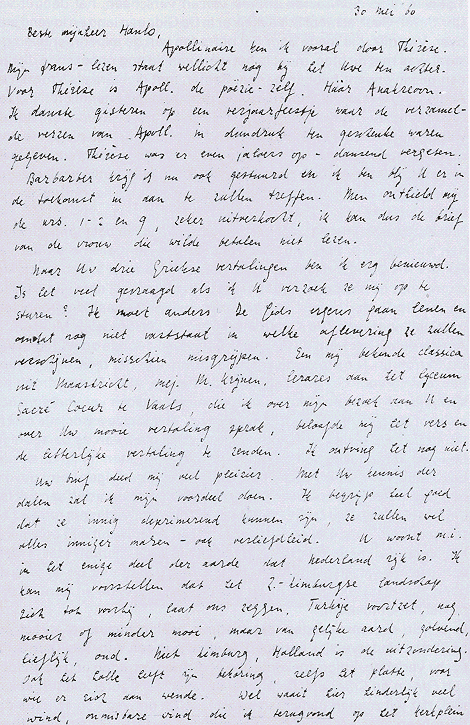 30 mei 60
Beste mijnheer Hanlo,
Apollinaire ken ik vooral door Thérèse.
Mijn frans-lezen staat wellicht nog bij het Uwe ten achter.
Voor Thérèse is Apoll. de poëzie-zelf. Háár Anakreoon.
Ik danste gisteren op een verjaarfeestje waar de verzamel-
de verzen van Apoll. in dundruk ten geschenke waren
gegeven. Thérèse was er even jaloers op - dansend vergeten.
Barbarber krijg ik nu ook gestuurd en ik ben blij U er in
de toekomst in aan te zullen treffen. Men onthield mij
de nrs. 1- en 9, zeker uitverkocht, ik kan dus de brief
van de vrouw die wilde betalen niet lezen.
Naar Uw drie Griekse vertalingen ben ik erg benieuwd.
Is het veel gevraagd als ik U verzoek ze mij op te
sturen? Ik moet anders De Gids ergens gaan lenen en
omdat nog niet vaststaat in welke aflevering ze zullen
verschijnen, misschien misgrijpen. Een mij bekende classica
uit Maastricht, mej. M. Krijnen, lerares aan het lyceum
Sacré Coeur te Vaals, die ik over mijn bezoek aan U en
over Uw mooie vertaling sprak, beloofde mij het vers en
de letterlijke vertaling te zenden. Ik ontving het nog niet.
Uw brief deed mij veel plezier. Met Uw kennis der
dalen zal ik mijn voordeel doen. Ik begrijp heel goed
dat ze innig deprimerend kunnen zijn, ze zullen wel
alles inniger maken - ook verliefdheid. U woont m.i.
in het enige deel der aarde dat Nederland rijk is. Ik
kan mij voorstellen dat het Z.-Limburgse landschap
zich tot voorbij, laat ons zeggen, Turkije voortzet, nog
mooier of minder mooi, maar van gelijke aard, golvend,
lieflijk, oud. Niet Limburg, Holland is de uitzondering.
Ook het holle heeft zijn bekoring, zelfs het platte, voor
wie er zich aan wende. Wel waait hier hinderlijk veel
wind, onmisbare wind die ik terugvond op het kerkplein